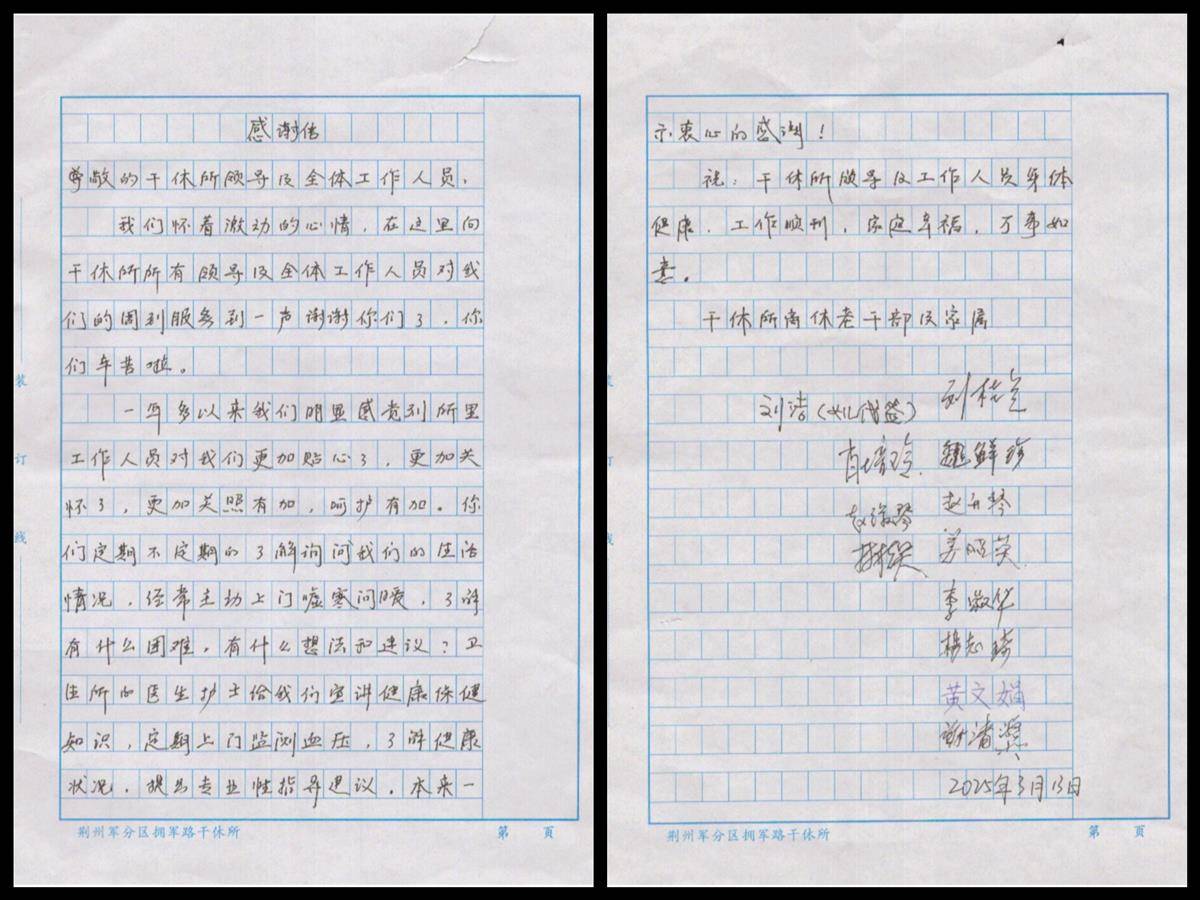 感谢信
尊敬的干休所领导及全体工作人员.
我们怀着激动的心情，在这里向
干休所所有领导及全体工作人员对我
们的周到服务到一声谢谢你们了，你
们辛苦啦。
一年多以来我们明显感觉到所里
工作人员对我们更加贴心了，更加关
怀了，更加关照有加，呵护有加。你
们定期不定期的了解询问我们的生活
情况，经常主动上门嘘寒问暖，了解
有什么困难，有什么想法和建议？卫
生所的医生护士给我们宣讲健康保健
知识，定期上门监测血压，了解健康
状况，提出专业性指导建议。本来一
装
订
线
荆州军分区拥军路干休所
第 页
示衷心的感谢！
祝：干休所领导及工作人员身体
健康，工作顺利，家庭幸福，万事如
意。
干休所离休老干部及家属
刘洁(女儿代签)
魏鲜珍
李淑华
黄文娟
2025年3月13日
订
荆州军分区拥军路干休所
第 页